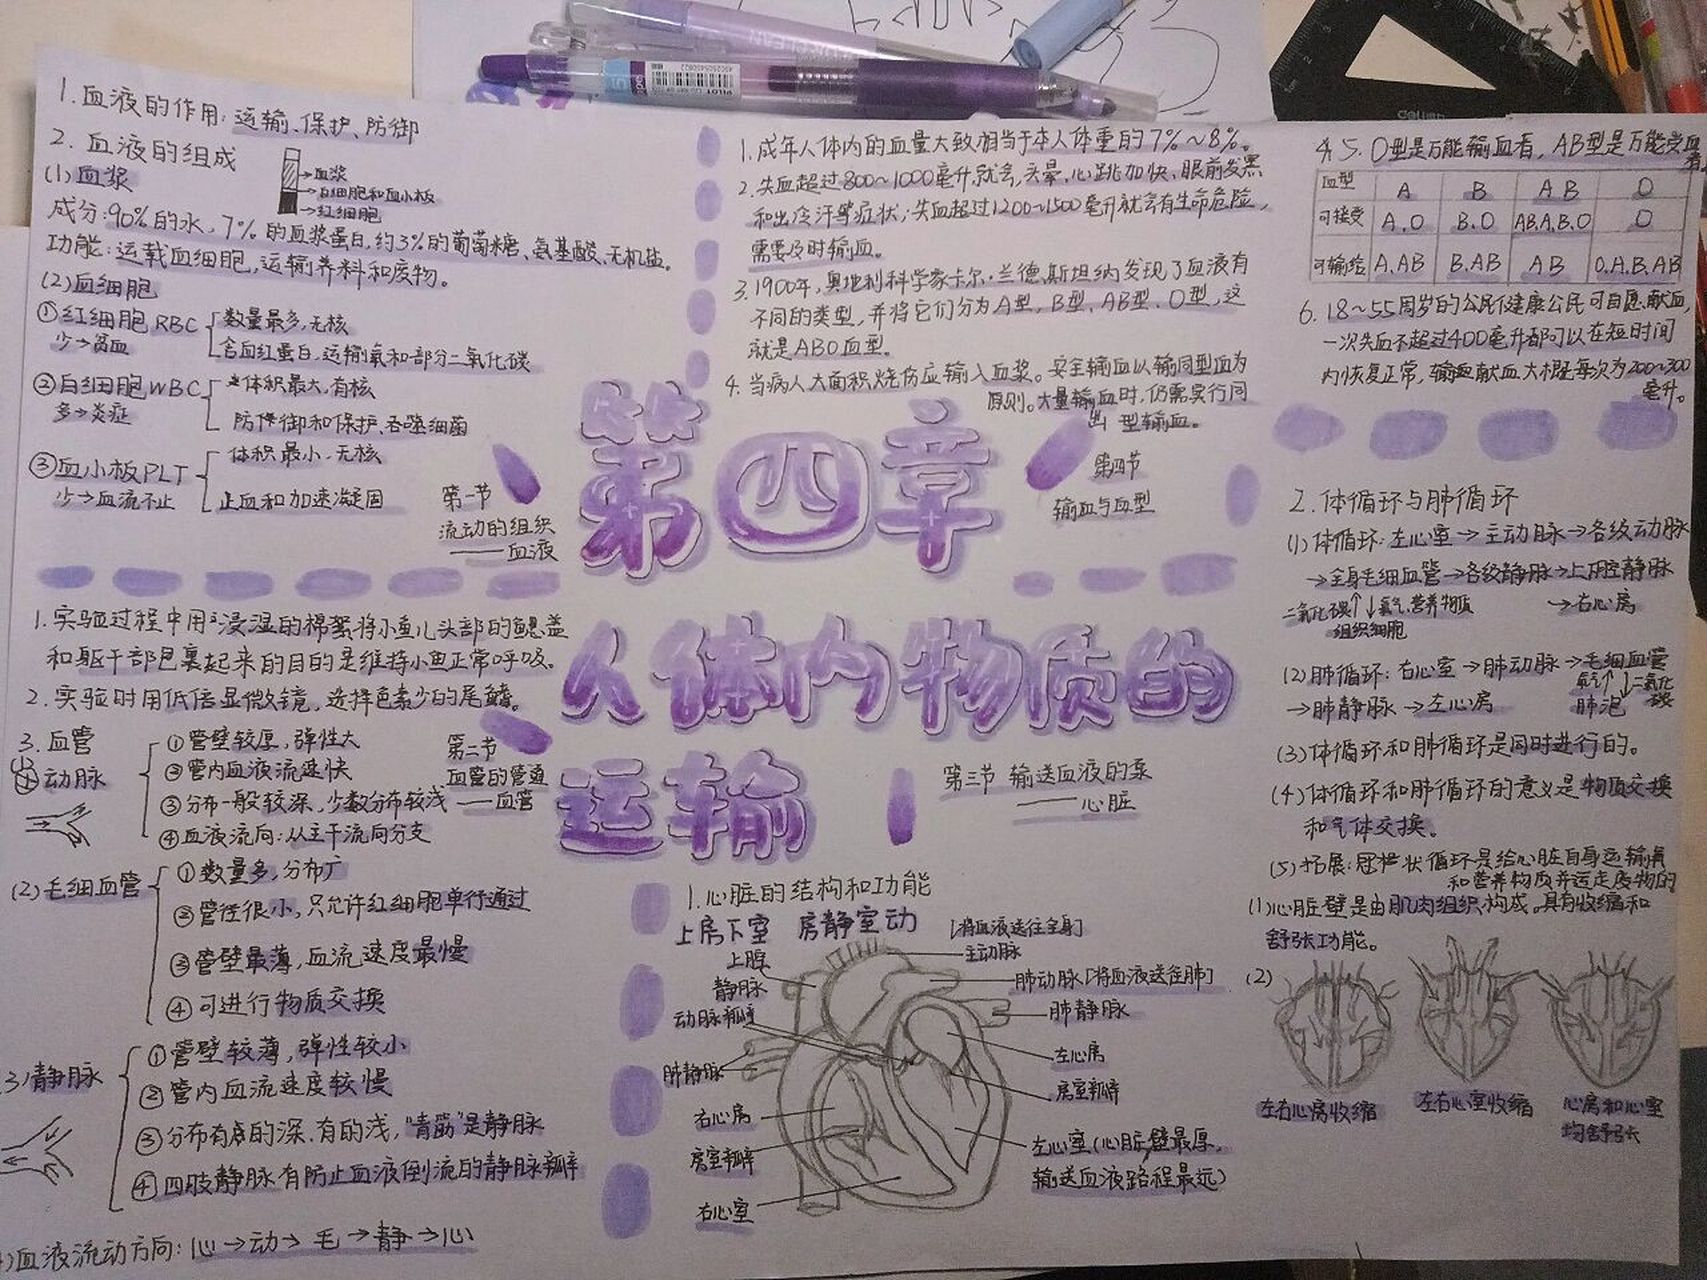 1.血液的作用:运输、保护、防御
2.血液的组成
(1)血浆
血浆
白细胞和血小板
红细胞
成分:90%的水,7%的血浆蛋白,约3%的葡萄糖、氨基酸、无机盐。
功能:运载血细胞,运输养料和废物。
(2)血细胞
①红细胞RBC
少→贫血
数量最多,无核
含血红蛋白,运输氧和部分二氧化碳
②白细胞WBC
多→炎症
体积最大,有核
防御和保护、吞噬细菌
③血小板PLT
少→血流不止
体积最小,无核
止血和加速凝固
第一节
流动的组织
——血液
1.成年人体内的血量大致相当于本人体重的7%~8%。
2.失血超过800~1000毫升就会,头晕、心跳加快、眼前发黑
和出冷汗等症状;失血超过1200~1500毫升就会有生命危险,
需要及时输血。
3.1900年,奥地利科学家卡尔·兰德斯坦纳发现了血液有
不同的类型,并将它们分为A型,B型、AB型、O型,这
就是ABO血型。
4.当病人大面积烧伤应输入血浆。安全输血以输同型血为
原则。大量输血时,仍需实行同
型输血。
第四节
输血与血型
5.O型是万能输血者,AB型是万能受血者
血型 A B AB O
可接受 A,O B,O AB,A,B,O O
可输给 A,AB B,AB AB O,A,B,AB
6.18~55周岁的公民健康公民可自愿献血,
一次失血不超过400毫升都可以在短时间
内恢复正常,献血大概每次为200~300
毫升。
第四章
人体内物质的
运输
1.实验过程中用浸湿的棉絮将小鱼儿头部的鳃盖
和躯干部包裹起来的目的是维持小鱼正常呼吸。
2.实验时用低倍显微镜,选择色素少的尾鳍。
3.血管
动脉
①管壁较厚,弹性大
②管内血液流速快
③分布一般较深,少数分布较浅
④血液流向:从主干流向分支
第二节
血管的管道
——血管
(2)毛细血管
①数量多,分布广
②管径很小,只允许红细胞单行通过
③管壁最薄,血流速度最慢
④可进行物质交换
3)静脉
①管壁较薄,弹性较小
②管内血流速度较慢
③分布有的深、有的浅,“青筋”是静脉
④四肢静脉有防止血液倒流的静脉瓣
)血液流动方向:心→动→毛→静→心
第三节 输送血液的泵
——心脏
1.心脏的结构和功能
上房下室 房静室动
[将血液送往全身]
主动脉
上腔
静脉
肺动脉[将血液送往肺]
肺静脉
动脉瓣
左心房
肺静脉
房室瓣
右心房
左心室(心脏壁最厚,
输送血液路程最远)
房室瓣
右心室
2.体循环与肺循环
(1)体循环:左心室→主动脉→各级动脉
→全身毛细血管→各级静脉→上下腔静脉
二氧化碳↑↓氧气,营养物质
→右心房
组织细胞
(2)肺循环:右心室→肺动脉→毛细血管
氧气↑↓二氧化碳
→肺静脉→左心房
肺泡
(3)体循环和肺循环是同时进行的。
(4)体循环和肺循环的意义是物质交换
和气体交换。
(5)拓展:冠状循环是给心脏自身运输氧
和营养物质并运走废物的
(1)心脏壁是由肌肉组织构成。具有收缩和
舒张功能。
(2)
左右心房收缩
左右心室收缩
心房和心室
均舒张